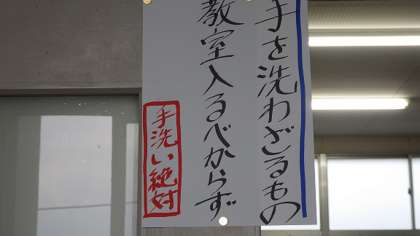 手を洗わざるもの
教室入るべからず
手洗い絶対